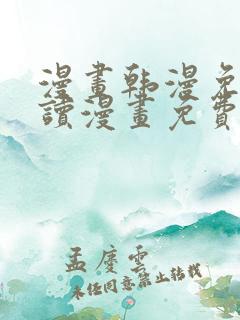 漫畫韩漫免
讀漫畫免費
孟慶雲
未经同意禁止转载